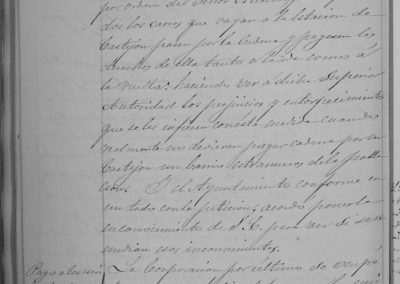 por orden del Señor
dos los carros que vayan a la Estacion de
Castejon pasen por la Cadena y paguen los
derechos de ella tanto a la ida como á
la vuelta: haciendo ver a dicha Superior
Autoridad los perjuicios y entorpecimientos
que se les infieren con esta medida cuando
realmente no devieran pagar cadena por ser
Castejon un barrio estramuros de la
Y el Ayuntamiento conforme en
un todo con la peticion, acordo ponerla
inconveniente de S. E. para ver si se re-
median esos inconvenientes.
La Corporacion por ultimo se ocupó